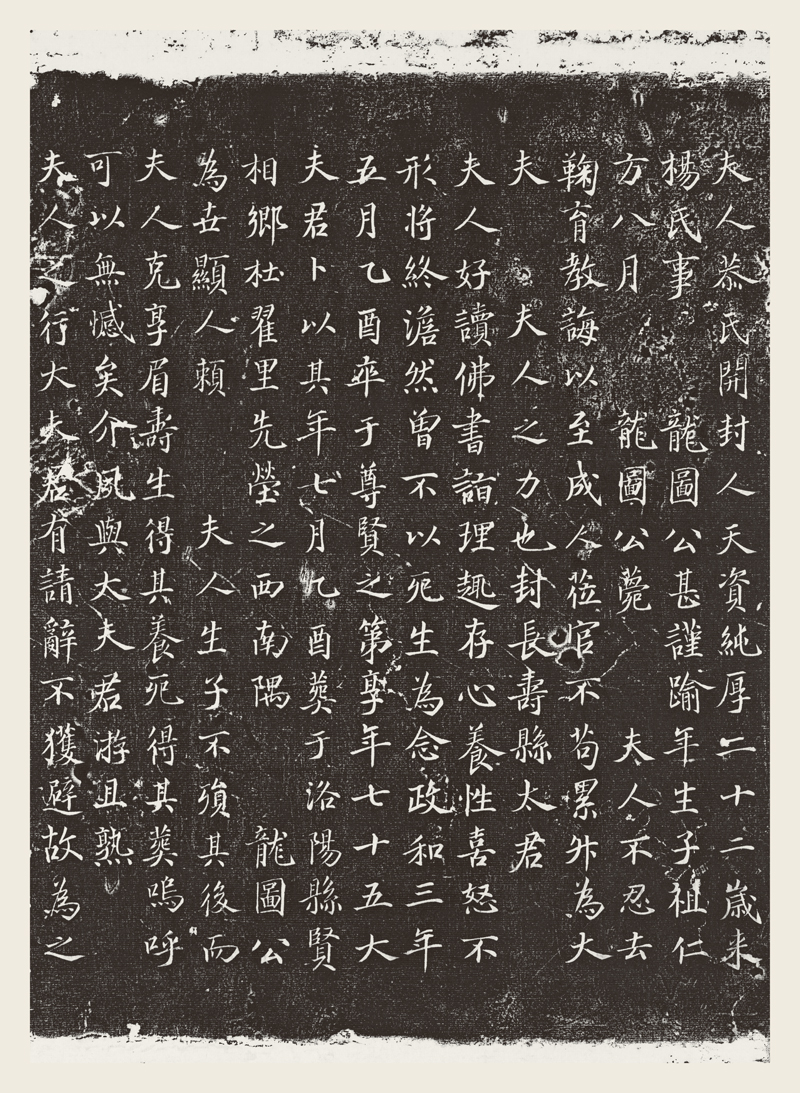 夫人恭氏開封人天資純厚二十二歲来
楊氏事 龍圖公甚謹踰年生子祖仁
方八月 龍圖公薨 夫人不忍去
鞠育教誨以至成人莅官不苟累舛為大
夫 夫人之力也封長壽縣太君
夫人好讀佛書詣理趣存心養性喜怒不
形將終澹然曾不以死生為念政和三年
五月乙酉卒于尊賢之第享年七十五大
夫君卜以其年七月 酉葬于洛陽縣賢
相鄉杜翟里先塋之西南隅 龍圖公
為世顯人頼 夫人生子不殞其後而
夫人克享眉壽生得其養死得其葬嗚呼
可以無憾矣介夙與大夫君游且熟
夫人之行大夫君有請辭不獲避故為之